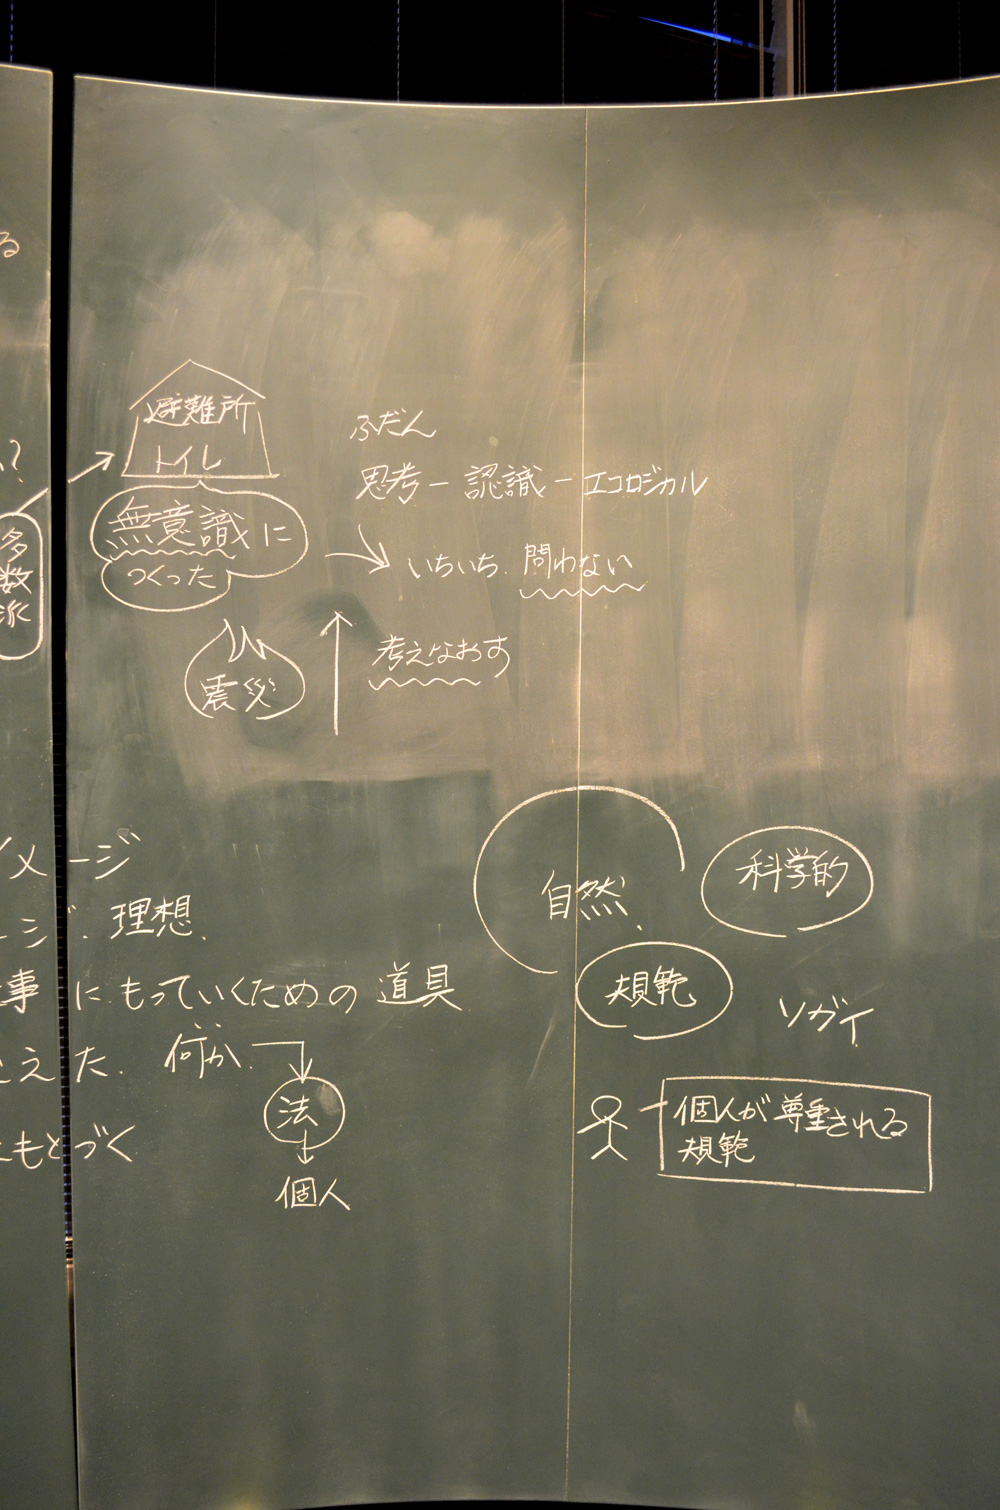 る
避難所
トイレ
ふだん
思考ー認識ーエコロジカル
い?
多数派
無意識に
つくった
いちいち.問わない
震災
考えなおす
イメージ
ージ.理想.
自然.
科学的
規範
事にもっていくための道具
ソガイ
えた.何か.
法
個人が尊重される
規範
にもとづく
個人